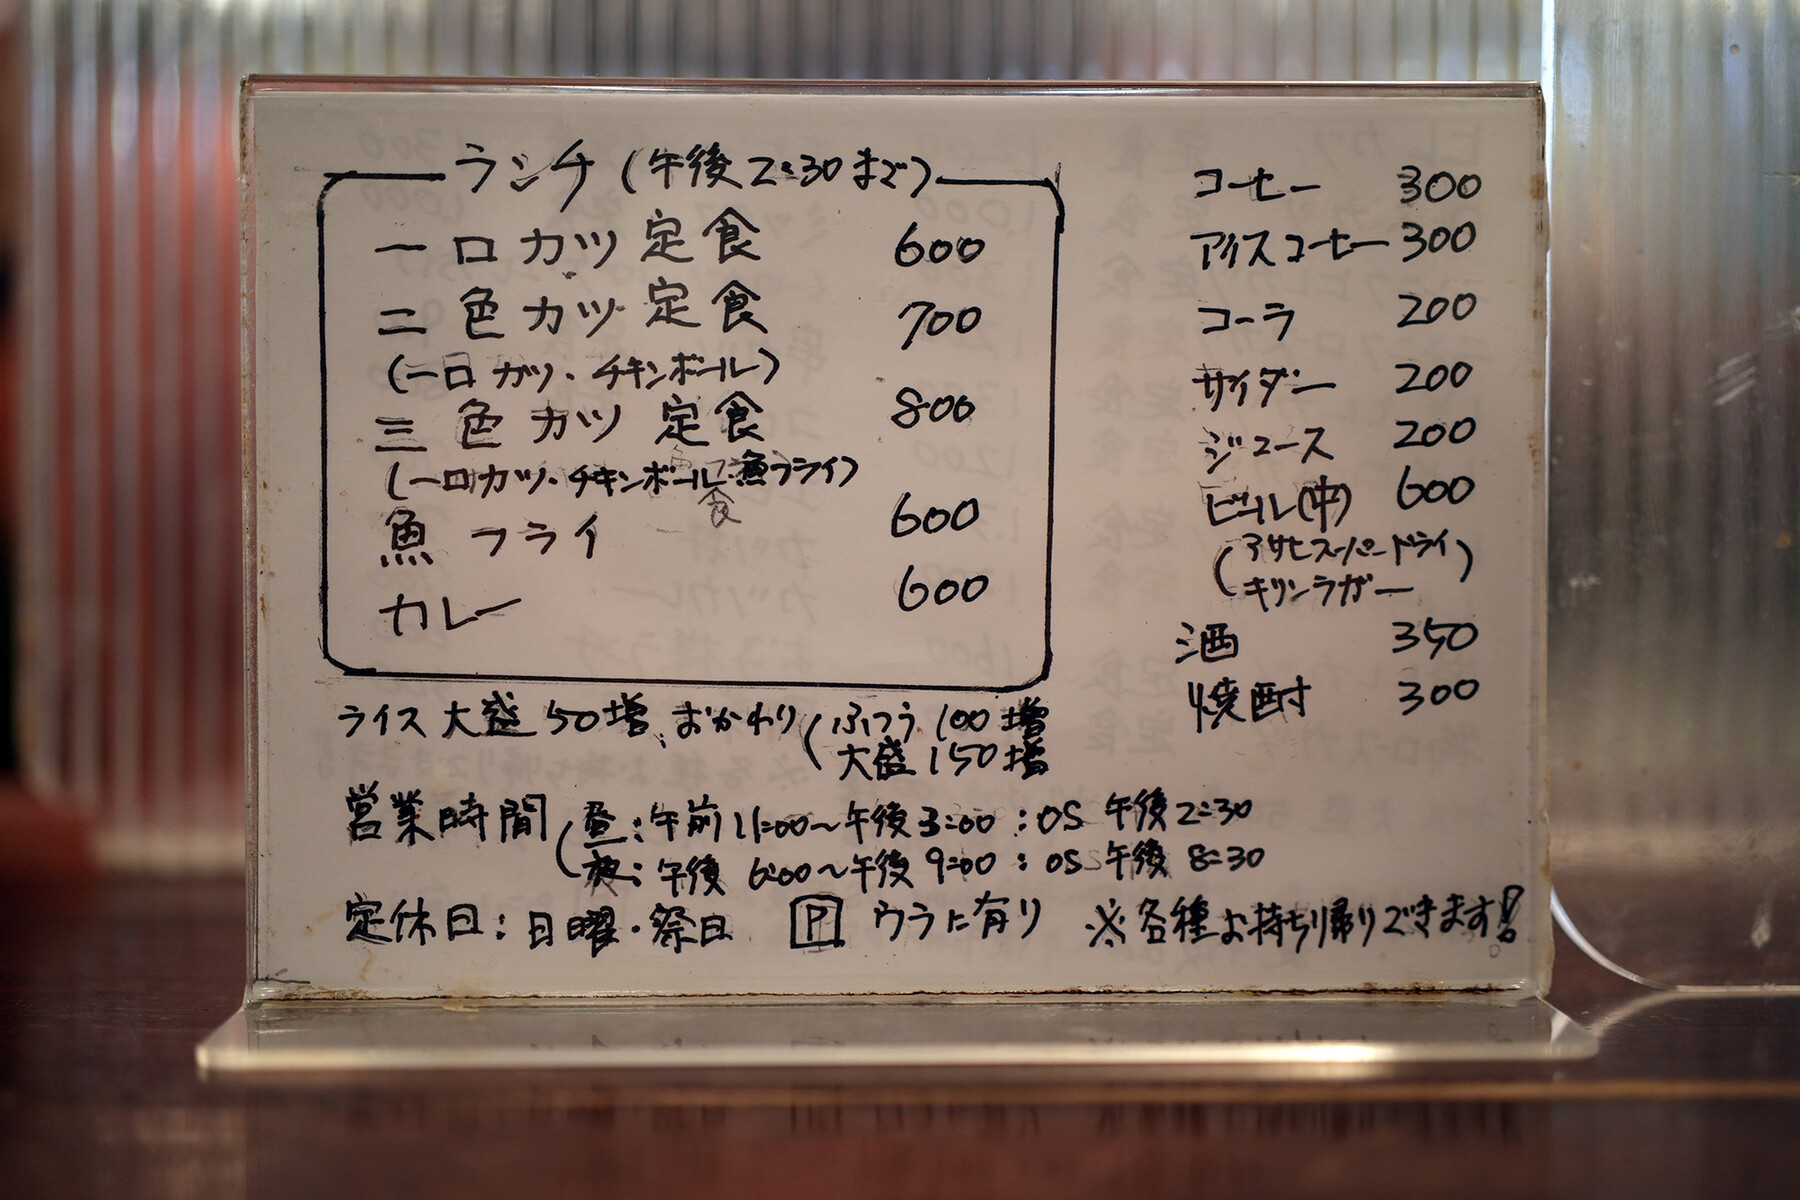 ランチ(午後2:30まで)
一口カツ定食 600
二色カツ定食 700
(一口カツ・チキンボール)
三色カツ定食 800
(一口カツ・チキンボール・魚フライ)
魚フライ 600
カレー 600
ライス大盛50増、おかわり(ふつう100増
大盛150増
営業時間(昼:午前11:00〜午後3:00:OS 午後2:30
夜:午後6:00〜午後9:00:OS 午後8:30
定休日:日曜・祭日 P ウラに有り ※各種お持ち帰りできます!
コーヒー 300
アイスコーヒー 300
コーラ 200
サイダー 200
ジュース 200
ビール(中) 600
(アサヒスーパードライ)
キリンラガー
酒 350
焼酎 300